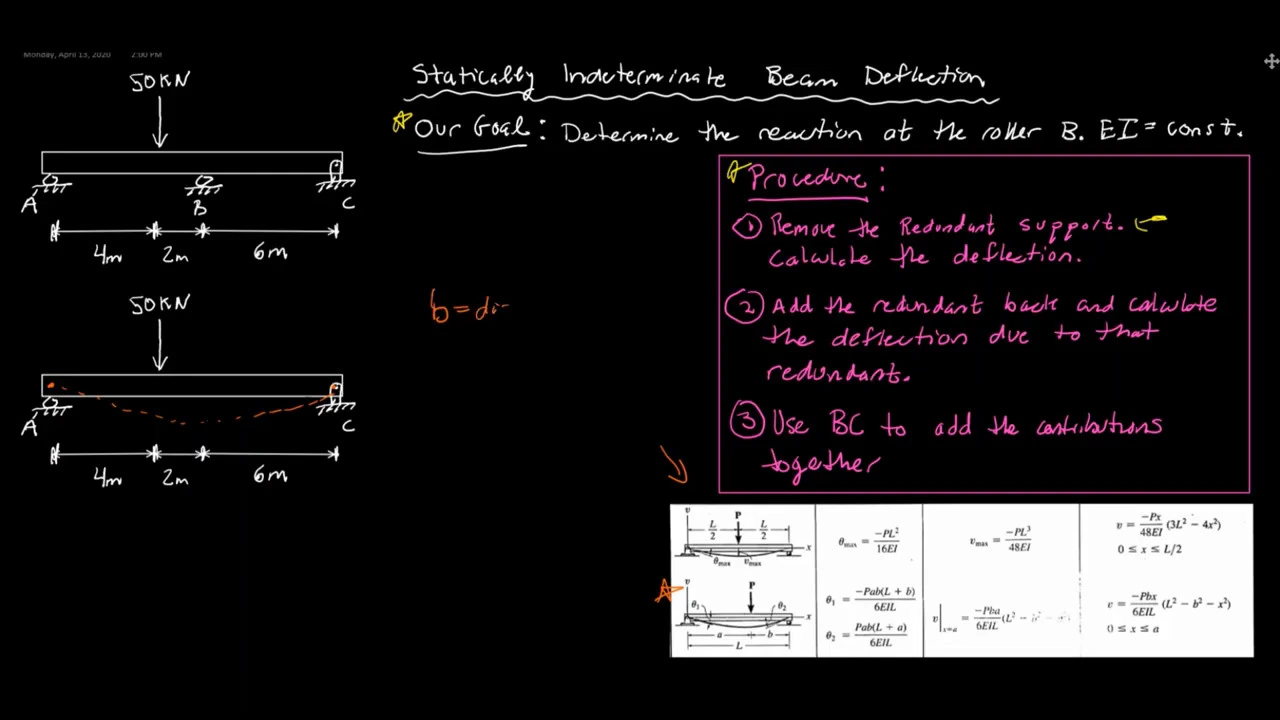 Monday, April 13, 2020 2:00 PM
Statically Indeterminate Beam Deflection
Our Goal: Determine the reaction at the roller B. EI = const.
50KN
A
B
C
4m 2m 6m
50KN
A
C
4m 2m 6m
b=di
Procedure:
① Remove the Redundant support.
Calculate the deflection.
② Add the redundant back and calculate
the deflection due to that
redundant.
③ Use BC to add the contributions
together
v P
L/2 L/2
x
θmax vmax
θmax = -PL²/16EI
vmax = -PL³/48EI
v = -Px/48EI (3L² - 4x²)
0 ≤ x ≤ L/2
v P
θ1 θ2
x
a b
L
θ1 = -Pab(L + b)/6EIL
θ2 = Pab(L + a)/6EIL
v|x=a = -Pba/6EIL (L² -
v = -Pbx/6EIL (L² - b² - x²)
0 ≤ x ≤ a